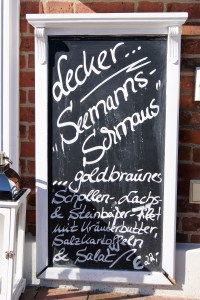 lecker...
"Seemanns-
Schmaus"
...goldbraunes
Schollen-, Lachs-
& Steinbeißer-filet
mit Kräuterbutter,
Salzkartoffeln
& Salat